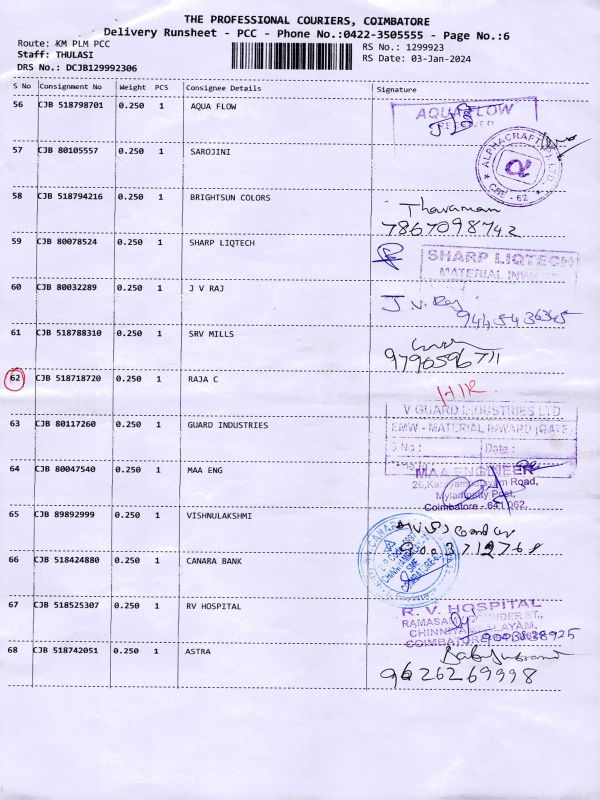 THE PROFESSIONAL COURIERS, COIMBATORE
Delivery Runsheet - PCC - Phone No.:0422-3505555 - Page No.:6
Route: KM PLM PCC
RS No.: 1299923
Staff: THULASI
RS Date: 03-Jan-2024
DRS No.: DCJB129992306
S No Consignment No Weight PCS Consignee Details Signature
56 CJB 518798701 0.250 1 AQUA FLOW
AQUA FLOW
57 CJB 80105557 0.250 1 SAROJINI
ALPHACRAFT
CBE - 62
58 CJB 518794216 0.250 1 BRIGHTSUN COLORS
Thavaman
7867098742
59 CJB 80078524 0.250 1 SHARP LIQTECH
SHARP LIQTECH
MATERIAL INWARD
60 CJB 80032289 0.250 1 J V RAJ
J.V. Raj
61 CJB 518788310 0.250 1 SRV MILLS
9790596711
62 CJB 518718720 0.250 1 RAJA C
63 CJB 80117260 0.250 1 GUARD INDUSTRIES
V GUARD INDUSTRIES LTD
EMW - MATERIAL INWARD (GATE)
S No : Date :
64 CJB 80047540 0.250 1 MAA ENG
MAA ENGINEER
Road,
Mylampatty Post,
Coimbatore - 641 062.
65 CJB 89892999 0.250 1 VISHNULAKSHMI
66 CJB 518424880 0.250 1 CANARA BANK
CANARA
SME
67 CJB 518525307 0.250 1 RV HOSPITAL
R. V. HOSPITAL
68 CJB 518742051 0.250 1 ASTRA
9626269998